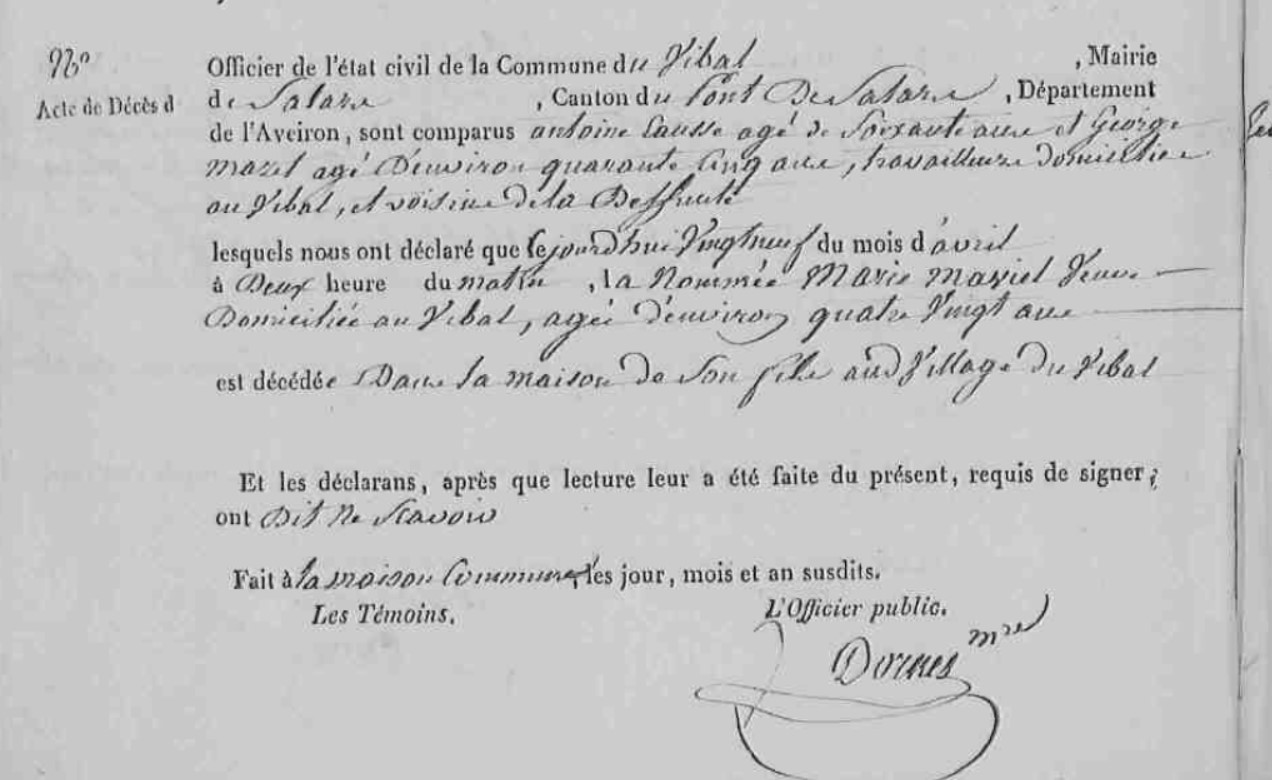 Officier de l'état civil de la Commune du Vibal, Mairie
Acte de Décès d
de Salars, Canton du Pont De Salars, Département
de l'Aveiron, sont comparus antoine Causse agé de Soixante ans et George
mazet agé D'environ quarante Cinq ans, travailleurs Domiciliés
au Vibal, et voisins de la Deffunte
lesquels nous ont déclaré que Cejourd'hui Vingt neuf du mois d'avril
à Deux heure du matin, la Nommée Marie Maziel Veuve
Domiciliée au Vibal, agée d'environ quatre Vingt ans
est décédée Dans la maison de Son fils aud Village Du Vibal
Et les déclarans, après que lecture leur a été faite du présent, requis de signer;
ont Dit Ne Scavoir
Fait à la maison Commune, les jour, mois et an susdits.
Les Témoins. L'Officier public.
mre